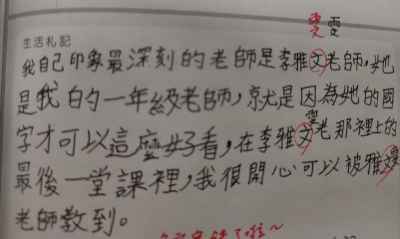 雯 雯
生活札記
我自己印象最深刻的老師是李雅文老師,她
是我的一年級老師,就是因為她的國
字才可以這麼好看,在李雅文老那裡上的
最後一堂課裡,我很開心可以被雅雯
老師教到。